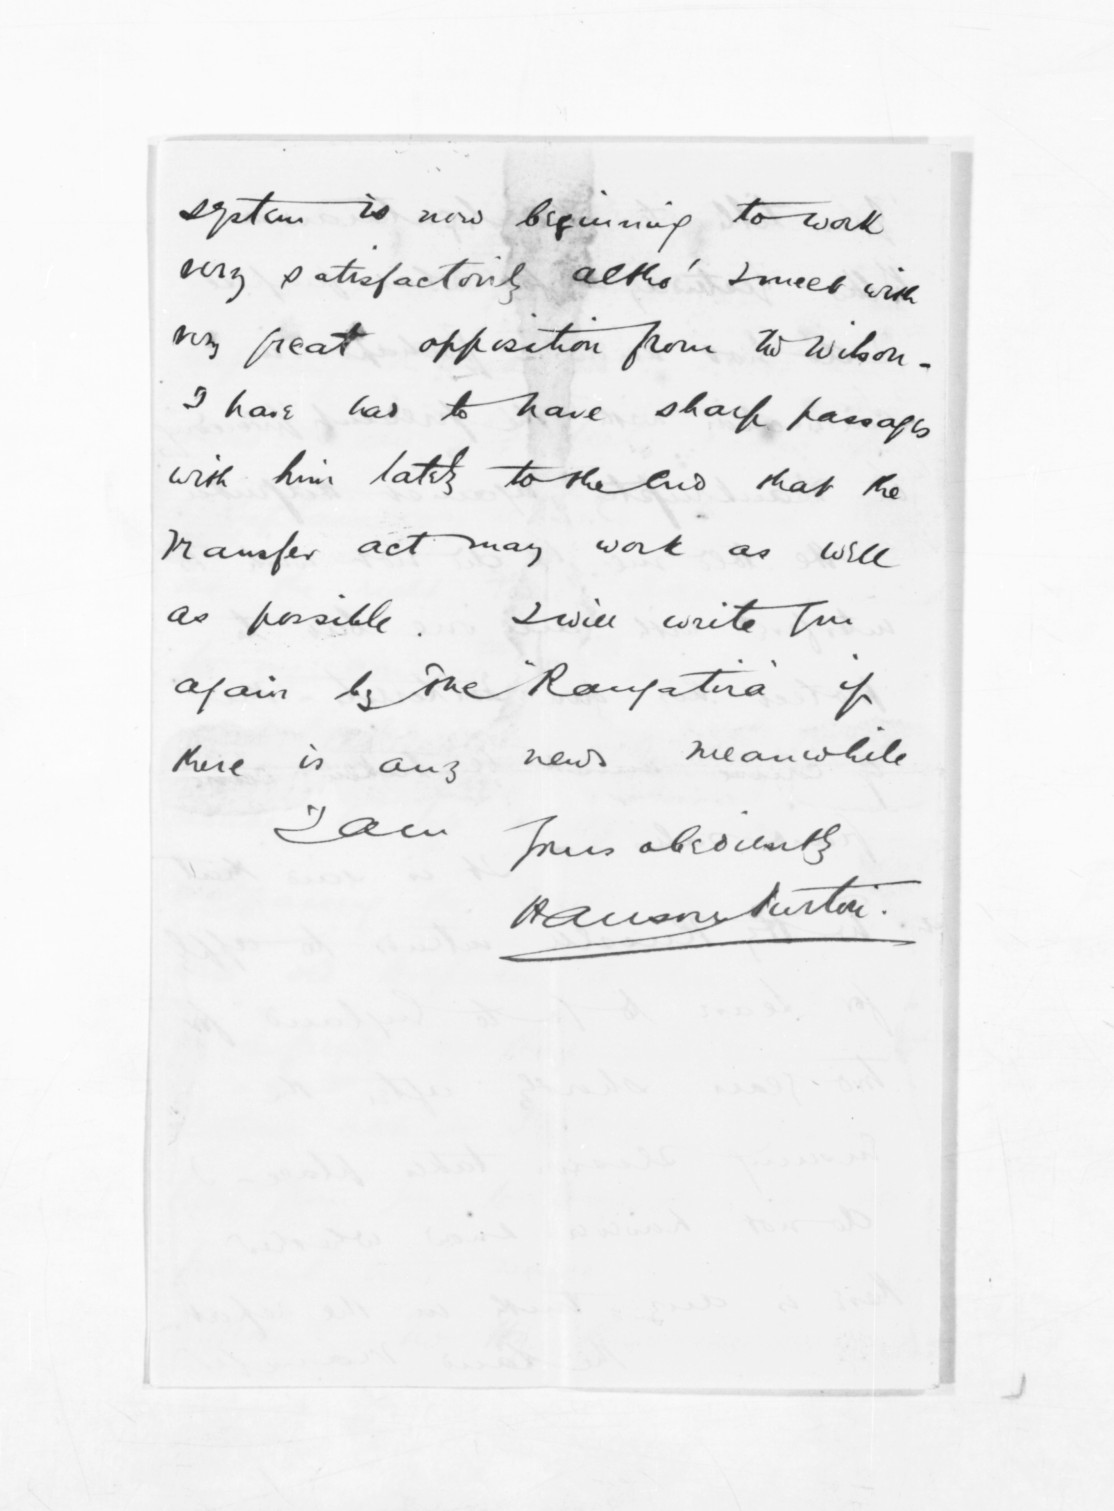 system is now beginning to work
very satisfactorily altho' I meet with
very great opposition from Wilson -
I have had to have sharp passages
with him lately to the end that the
Transfer act may work as well
as possible. I will write you
again by the "Rangatira" if
there is any news meanwhile
I am yours obediently
Hanson Turton.